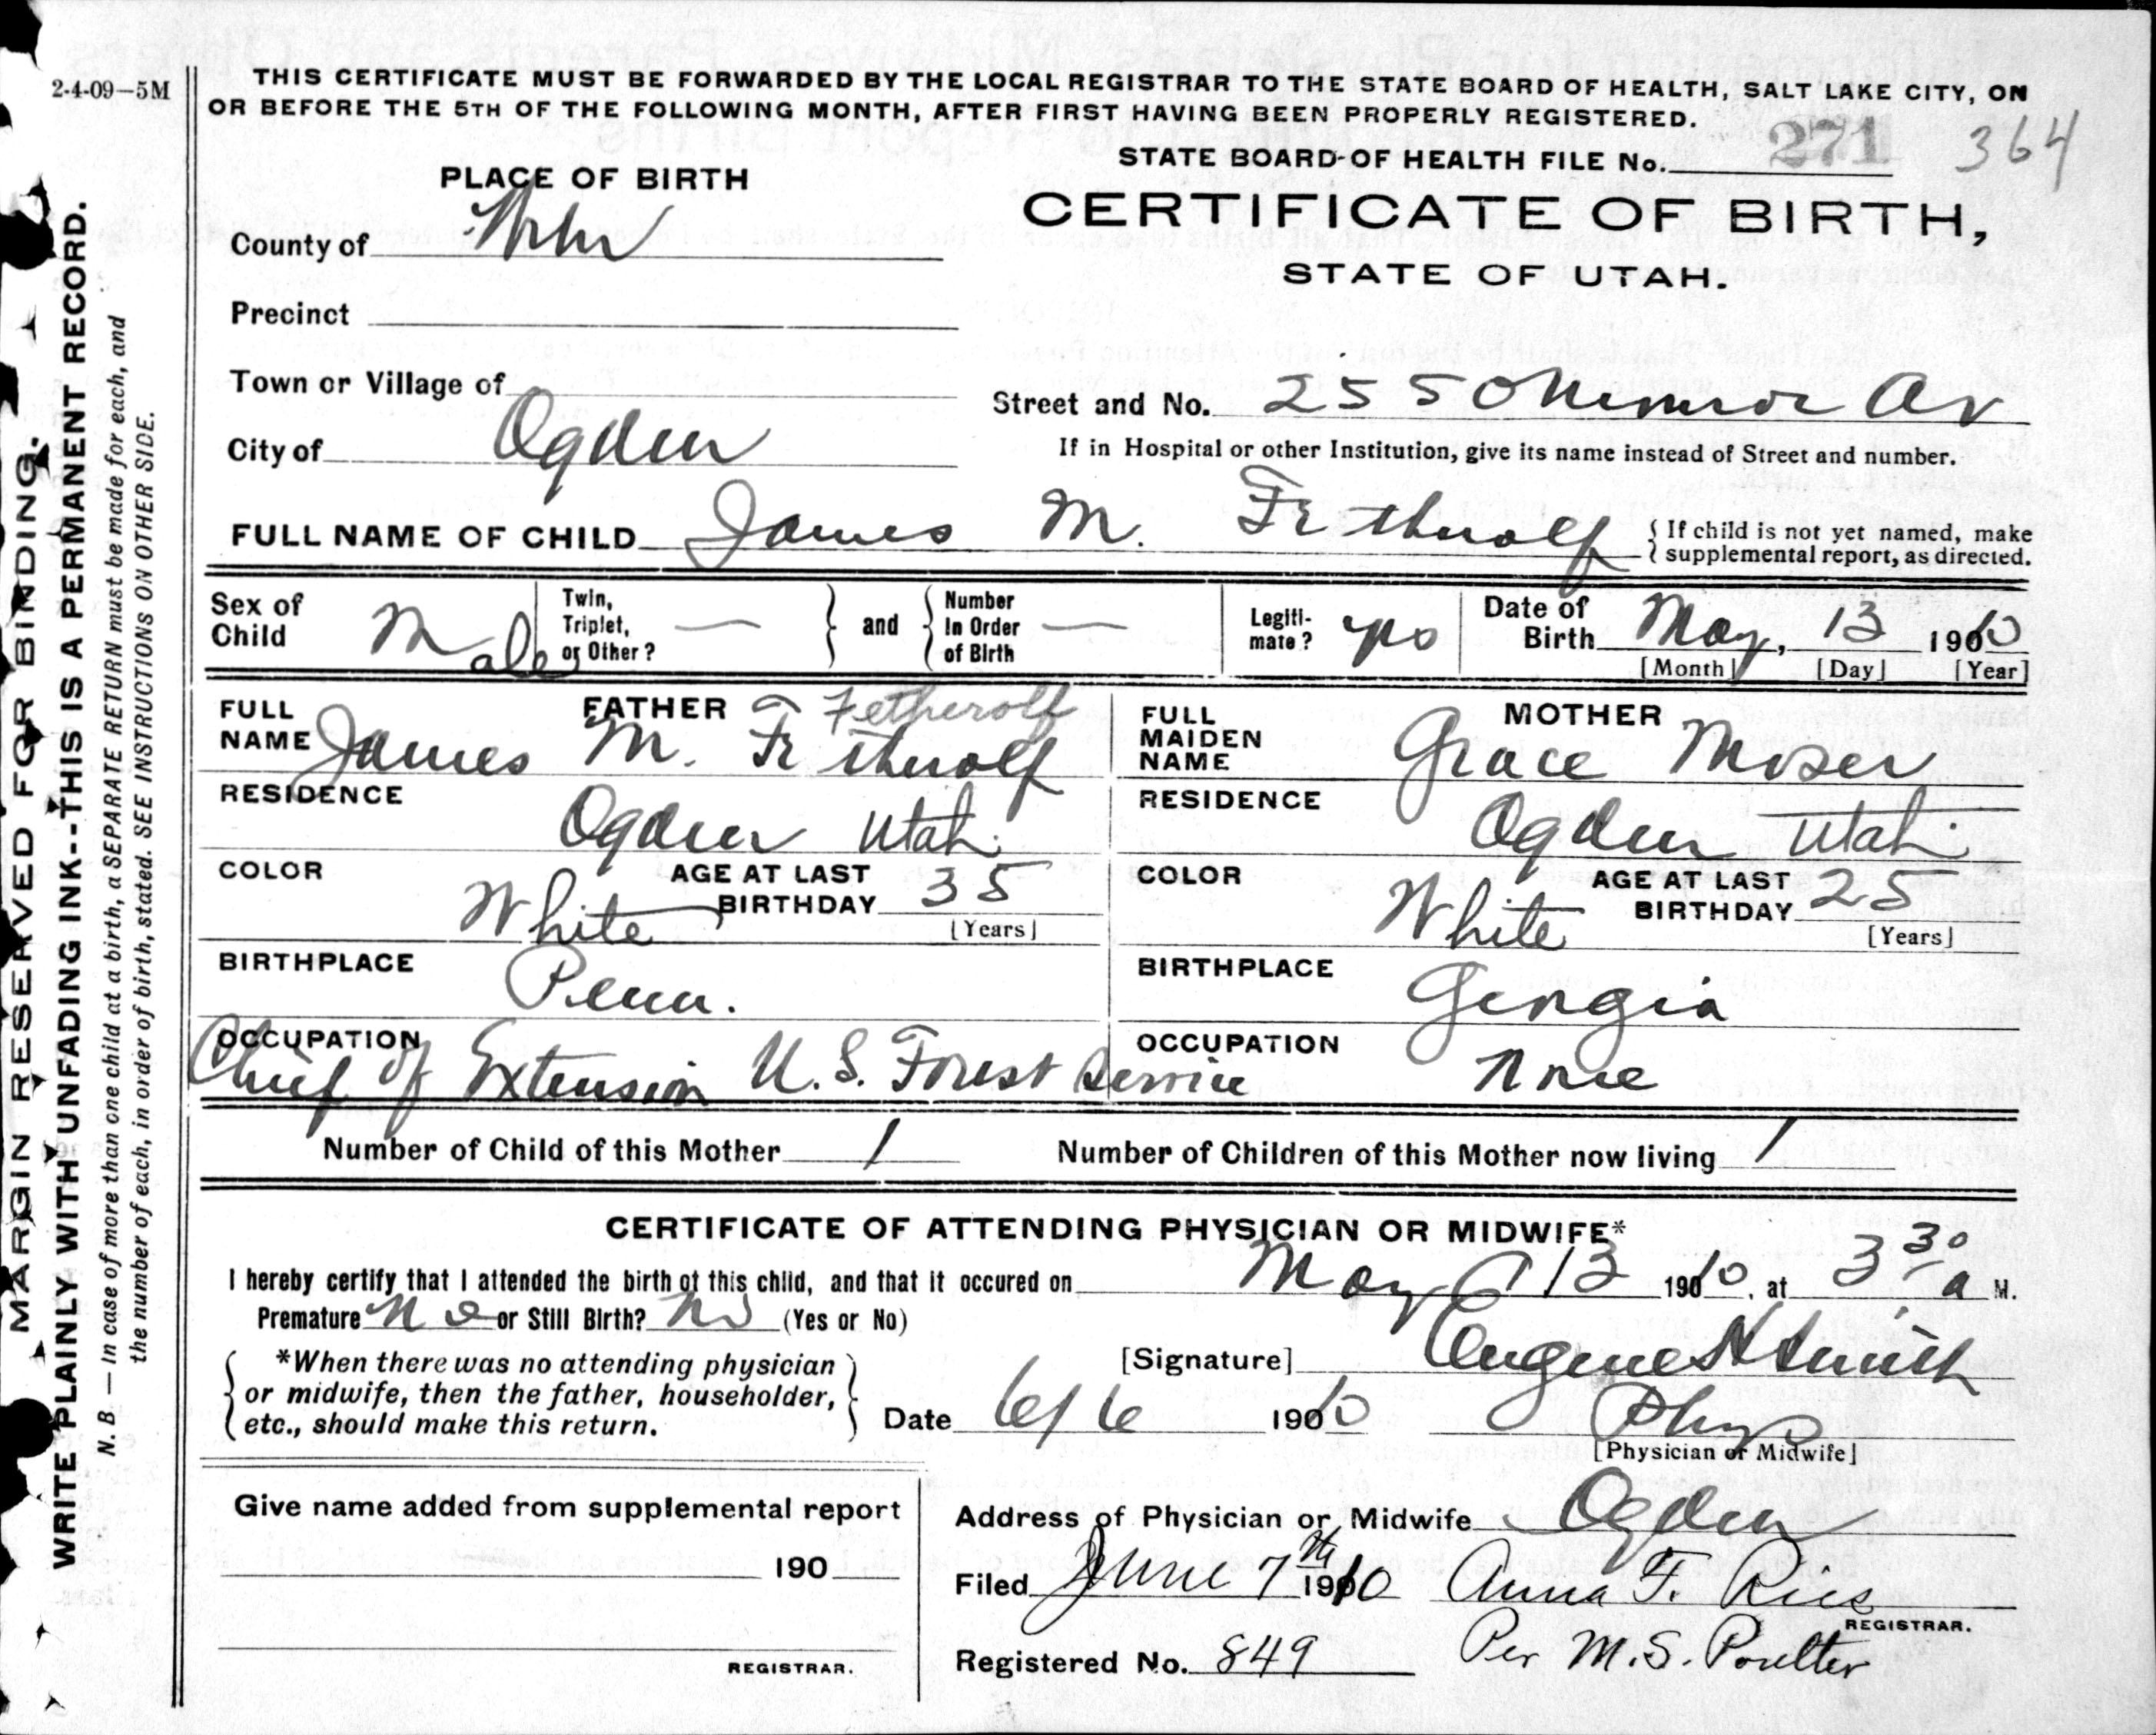 2-4-09—5M
THIS CERTIFICATE MUST BE FORWARDED BY THE LOCAL REGISTRAR TO THE STATE BOARD OF HEALTH, SALT LAKE CITY, ON
OR BEFORE THE 5TH OF THE FOLLOWING MONTH, AFTER FIRST HAVING BEEN PROPERLY REGISTERED.
STATE BOARD OF HEALTH FILE No. 271 364
CERTIFICATE OF BIRTH,
STATE OF UTAH.
PLACE OF BIRTH
County of Weber
Precinct
Town or Village of
Street and No. 2550 Monroe Av
City of Ogden
If in Hospital or other Institution, give its name instead of Street and number.
FULL NAME OF CHILD James M. Fetherolf
{ If child is not yet named, make
supplemental report, as directed.
Sex of Child Male
Twin, Triplet, or Other? —
} and {
Number In Order of Birth —
Legitimate? yes
Date of Birth May, 13 1910
[Month] [Day] [Year]
FATHER
Fetherolf
FULL NAME James M. Fetherolf
RESIDENCE Ogden Utah.
COLOR White
AGE AT LAST BIRTHDAY 35
[Years]
BIRTHPLACE Penn.
OCCUPATION
Chief of Extension U. S. Forest Service
MOTHER
FULL MAIDEN NAME Grace Moser
RESIDENCE Ogden Utah
COLOR White
AGE AT LAST BIRTHDAY 25
[Years]
BIRTHPLACE Georgia
OCCUPATION None
Number of Child of this Mother 1
Number of Children of this Mother now living 1
CERTIFICATE OF ATTENDING PHYSICIAN OR MIDWIFE*
I hereby certify that I attended the birth of this child, and that it occured on May 13 1910, at 3 30 a M.
Premature No or Still Birth? No (Yes or No)
*When there was no attending physician
or midwife, then the father, householder,
etc., should make this return.
[Signature] Eugene H Smith
Date 6/6 1910
Phys
[Physician or Midwife]
Give name added from supplemental report
190
REGISTRAR.
Address of Physician or Midwife Ogden
Filed June 7th 1910 Anna F. Ries
REGISTRAR.
Registered No. 849 Per M.S. Poulter
MARGIN RESERVED FOR BINDING.
WRITE PLAINLY WITH UNFADING INK--THIS IS A PERMANENT RECORD.
N. B.—In case of more than one child at a birth, a SEPARATE RETURN must be made for each, and
the number of each, in order of birth, stated. SEE INSTRUCTIONS ON OTHER SIDE.